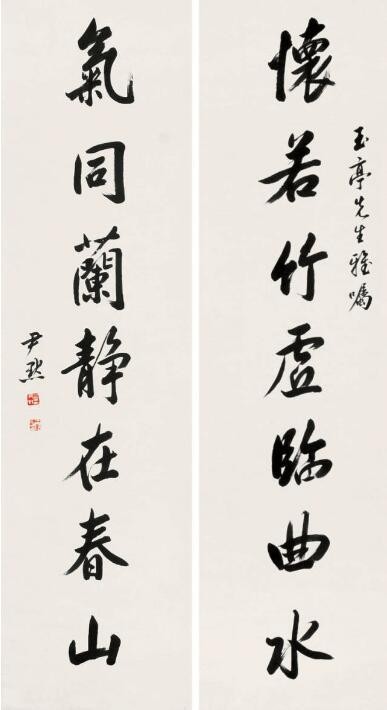 玉亭先生雅嘱
懷若竹虛臨曲水
氣同蘭静在春山
尹默